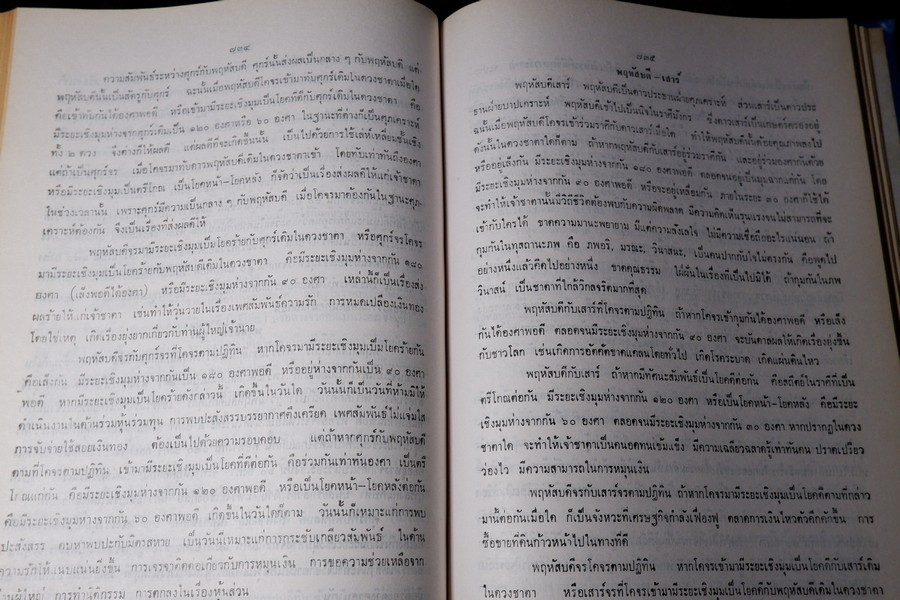 ๘๓๔
ความสัมพันธ์ระหว่างศุกร์กับพฤหัสบดี ศุกร์นั้นส่งผลเป็นกลาง ๆ กับพฤหัสบดี แต่
พฤหัสบดีนั้นเป็นศัตรูกับศุกร์ ฉะนั้นเมื่อพฤหัสบดีโคจรเข้ามาทับศุกร์เดิมในดวงชาตาเมื่อใด
คือเข้าทับกันได้องศาพอดี หรือเข้ามามีระยะเชิงมุมเป็นโยคที่ดีกับศุกร์เดิมในดวงชาตา คือ
มีระยะเชิงมุมห่างจากศุกร์เดิมเป็น ๑๒๐ องศาหรือ ๖๐ องศา ในฐานะที่ต่างก็เป็นศุภเคราะห์
ทั้ง ๒ ดวง จึงต่างก็ให้ผลดี แต่ผลที่จะเกิดขึ้นนั้น เป็นไปด้วยการใช้เล่ห์เหลี่ยมชั้นเชิง
แต่ถ้าเป็นศุกร์จร เมื่อโคจรมาทับดาวพฤหัสบดีเดิมในดวงชาตาเข้า โดยทับเท่าทันถึงองศา
หรือมีระยะเชิงมุมเป็นตรีโกณ เป็นโยคหน้า-โยคหลัง ก็จัดว่าเป็นเรื่องส่งผลดีให้แก่เจ้าชาตา
ในช่วงเวลานั้น เพราะศุกร์มีความเป็นกลาง ๆ กับพฤหัสบดี เมื่อโคจรมาต้องกันในฐานะศุภ-
เคราะห์ต้องกัน จึงเป็นเรื่องที่ส่งผลดีให้
พฤหัสบดีจรมามีระยะเชิงมุมเป็นโยคร้ายกับศุกร์เดิมในดวงชาตา หรือศุกร์จรโคจร
มามีระยะเชิงมุมเป็นโยคร้ายกับพฤหัสบดีเดิมในดวงชาตา คือมีระยะเชิงมุมห่างจากกัน ๑๘๐
องศา (เล็งพอดีได้องศา) หรือมีระยะเชิงมุมห่างจากกัน ๙๐ องศา เหล่านี้ก็เป็นเรื่องส่ง
ผลร้ายให้แก่เจ้าชาตา เช่นทำให้วุ่นวายในเรื่องเพศสัมพันธ์ความรัก การหมดเปลืองเงินทอง
โดยใช่เหตุ เกิดเรื่องยุ่งยากเกี่ยวกับท่านผู้ใหญ่เจ้านาย
พฤหัสบดีจรกับศุกร์จรที่โคจรตามปฏิทิน หากโคจรมามีระยะเชิงมุมเป็นโยคร้ายกัน
คือเล็งกัน มีระยะเชิงมุมห่างจากกันเป็น ๑๘๐ องศาพอดี หรืออยู่ห่างจากกันเป็น ๙๐ องศา
พอดี หากมีระยะเชิงมุมเป็นโยคร้ายดังกล่าวนี้ เกิดขึ้นในวันใด วันนั้นก็เป็นวันที่ห้ามมิให้
ดำเนินงานในด้านรวมหุ้นร่วมทุน การพบปะสังสรรบรรยากาศตึงเครียด เพศสัมพันธ์ไม่แจ่มใส
การจับจ่ายใช้สอยเงินทอง ต้องเป็นไปด้วยความรอบคอบ แต่ถ้าหากศุกร์กับพฤหัสบดี
ตามที่โคจรตามปฏิทิน เข้ามามีระยะเชิงมุมเป็นโยคที่ดีต่อกัน คือร่วมกันเท่าทันองศา เป็นตรี
โกณแก่กัน คือมีระยะเชิงมุมห่างจากกัน ๑๒๐ องศาพอดี หรือเป็นโยคหน้า-โยคหลังต่อกัน
คือมีระยะเชิงมุมห่างจากกัน ๖๐ องศาพอดี เกิดขึ้นในวันใดก็ตาม วันนั้นก็เหมาะแก่การพบ
ปะสังสรร คบหาพบปะกับมิตรสหาย เป็นวันที่เหมาะแก่การกระชับเกลียวสัมพันธ์ ในด้าน
ความรักให้แนบแน่นยิ่งขึ้น การเจรจาติดต่อเกี่ยวกับการหมุนเงิน การขอความช่วยเหลือจาก
ท่านผู้ใหญ่ การทำนิติกรรม การตกลงในเรื่องหุ้นส่วน
๘๓๕
พฤหัสบดี-เสาร์
พฤหัสบดีเสาร์ พฤหัสบดีเป็นดาวประธานฝ่ายศุภเคราะห์ ส่วนเสาร์เป็นดาวประ
ธานฝ่ายบาปเคราะห์ พฤหัสบดีเข้าไปเป็นนิจในราศีมังกร ซึ่งดาวเสาร์เป็นเกษตร์ครองอยู่
ฉะนั้นเมื่อพฤหัสบดีโคจรเข้าร่วมราศีกับดาวเสาร์เมื่อใด ทำให้พฤหัสบดีนั้นต้องด้อยคุณภาพลงไป
ดังนั้นในดวงชาตาใดก็ตาม ถ้าหากพฤหัสบดีกับเสาร์อยู่ร่วมราศีกัน และอยู่ร่วมองศากันด้วย
หรืออยู่เล็งกัน มีระยะเชิงมุมห่างจากกัน ๑๘๐ องศาพอดี ตลอดจนอยู่เป็นมุมฉากแก่กัน โดย
มีระยะเชิงมุมห่างจากกัน ๙๐ องศาพอดี หรือจะอยู่เหลื่อมกัน ภายในระยะ ๑๐ องศาก็ใช้ได้
จะทำให้เจ้าชาตานั้นมีวิถีชีวิตต้องพบกับความผิดพลาด มีความคิดเห็นรุนแรงจนไม่สามารถที่จะ
เข้ากับใครได้ ขาดความมานะพยายาม มีแต่ความลังเลใจ ไม่มีความเชื่อถืออะไรแน่นอน ถ้า
กุมกันในทุสถานะภพ คือ ภพอริ, มรณะ, วินาสนะ, เป็นคนปากกับใจไม่ตรงกัน คือพูดไป
อย่างหนึ่งแล้วคิดไปอย่างหนึ่ง ขาดคุณธรรม ใฝ่ฝันในเรื่องที่เป็นไปมิได้ ถ้ากุมกันในภพ
วินาสน์ เป็นชาตาที่ใกล้วิกลจริตมากที่สุด
พฤหัสบดีกับเสาร์ที่โคจรตามปฏิทิน ถ้าหากโคจรเข้ากุมกันได้องศาพอดี หรือเล็ง
กันได้องศาพอดี ตลอดจนมีระยะเชิงมุมห่างจากกัน ๙๐ องศา จะบันดาลผลให้เกิดเรื่องยุ่งขึ้น
กับชาวโลก เช่นเกิดการอัตคัดขาดแคลนโดยทั่วไป เกิดโรคระบาด เกิดแผ่นดินไหว
พฤหัสบดีกับเสาร์ ถ้าหากมีทัศนะสัมพันธ์เป็นโยคดีต่อกัน คือสถิตย์ในราศีที่เป็น
ตรีโกณต่อกัน มีระยะเชิงมุมห่างจากกัน ๑๒๐ องศา หรือเป็นโยคหน้า-โยคหลัง คือมีระยะ
เชิงมุมห่างจากกัน ๖๐ องศา ตลอดจนมีระยะเชิงมุมห่างจากกัน ๓๐ องศา หากปรากฏในดวง
ชาตาใด จะทำให้เจ้าชาตาเป็นคนอดทนเข้มแข็ง มีความเฉลียวฉลาดรู้เท่าทันคน ปราดเปรียว
ว่องไว มีความสามารถในการหมุนเงิน
พฤหัสบดีจรกับเสาร์จรตามปฏิทิน ถ้าหากโคจรมามีระยะเชิงมุมเป็นโยคดีตามที่กล่าว
มานี้ต่อกันเมื่อใด ก็เป็นจังหวะที่เศรษฐกิจกำลังเฟื่องฟู ตลาดการเงินไหวตัวคึกคักขึ้น การ
ซื้อขายที่ดินก้าวหน้าไปในทางที่ดี
พฤหัสบดีจรโคจรตามปฏิทิน หากโคจรเข้ามามีระยะเชิงมุมเป็นโยคดีกับเสาร์เดิม
ในดวงชาตา หรือเสาร์จรที่โคจรเข้ามามีระยะเชิงมุมเป็นโยคดีกับพฤหัสบดีเดิมในดวงชาตา